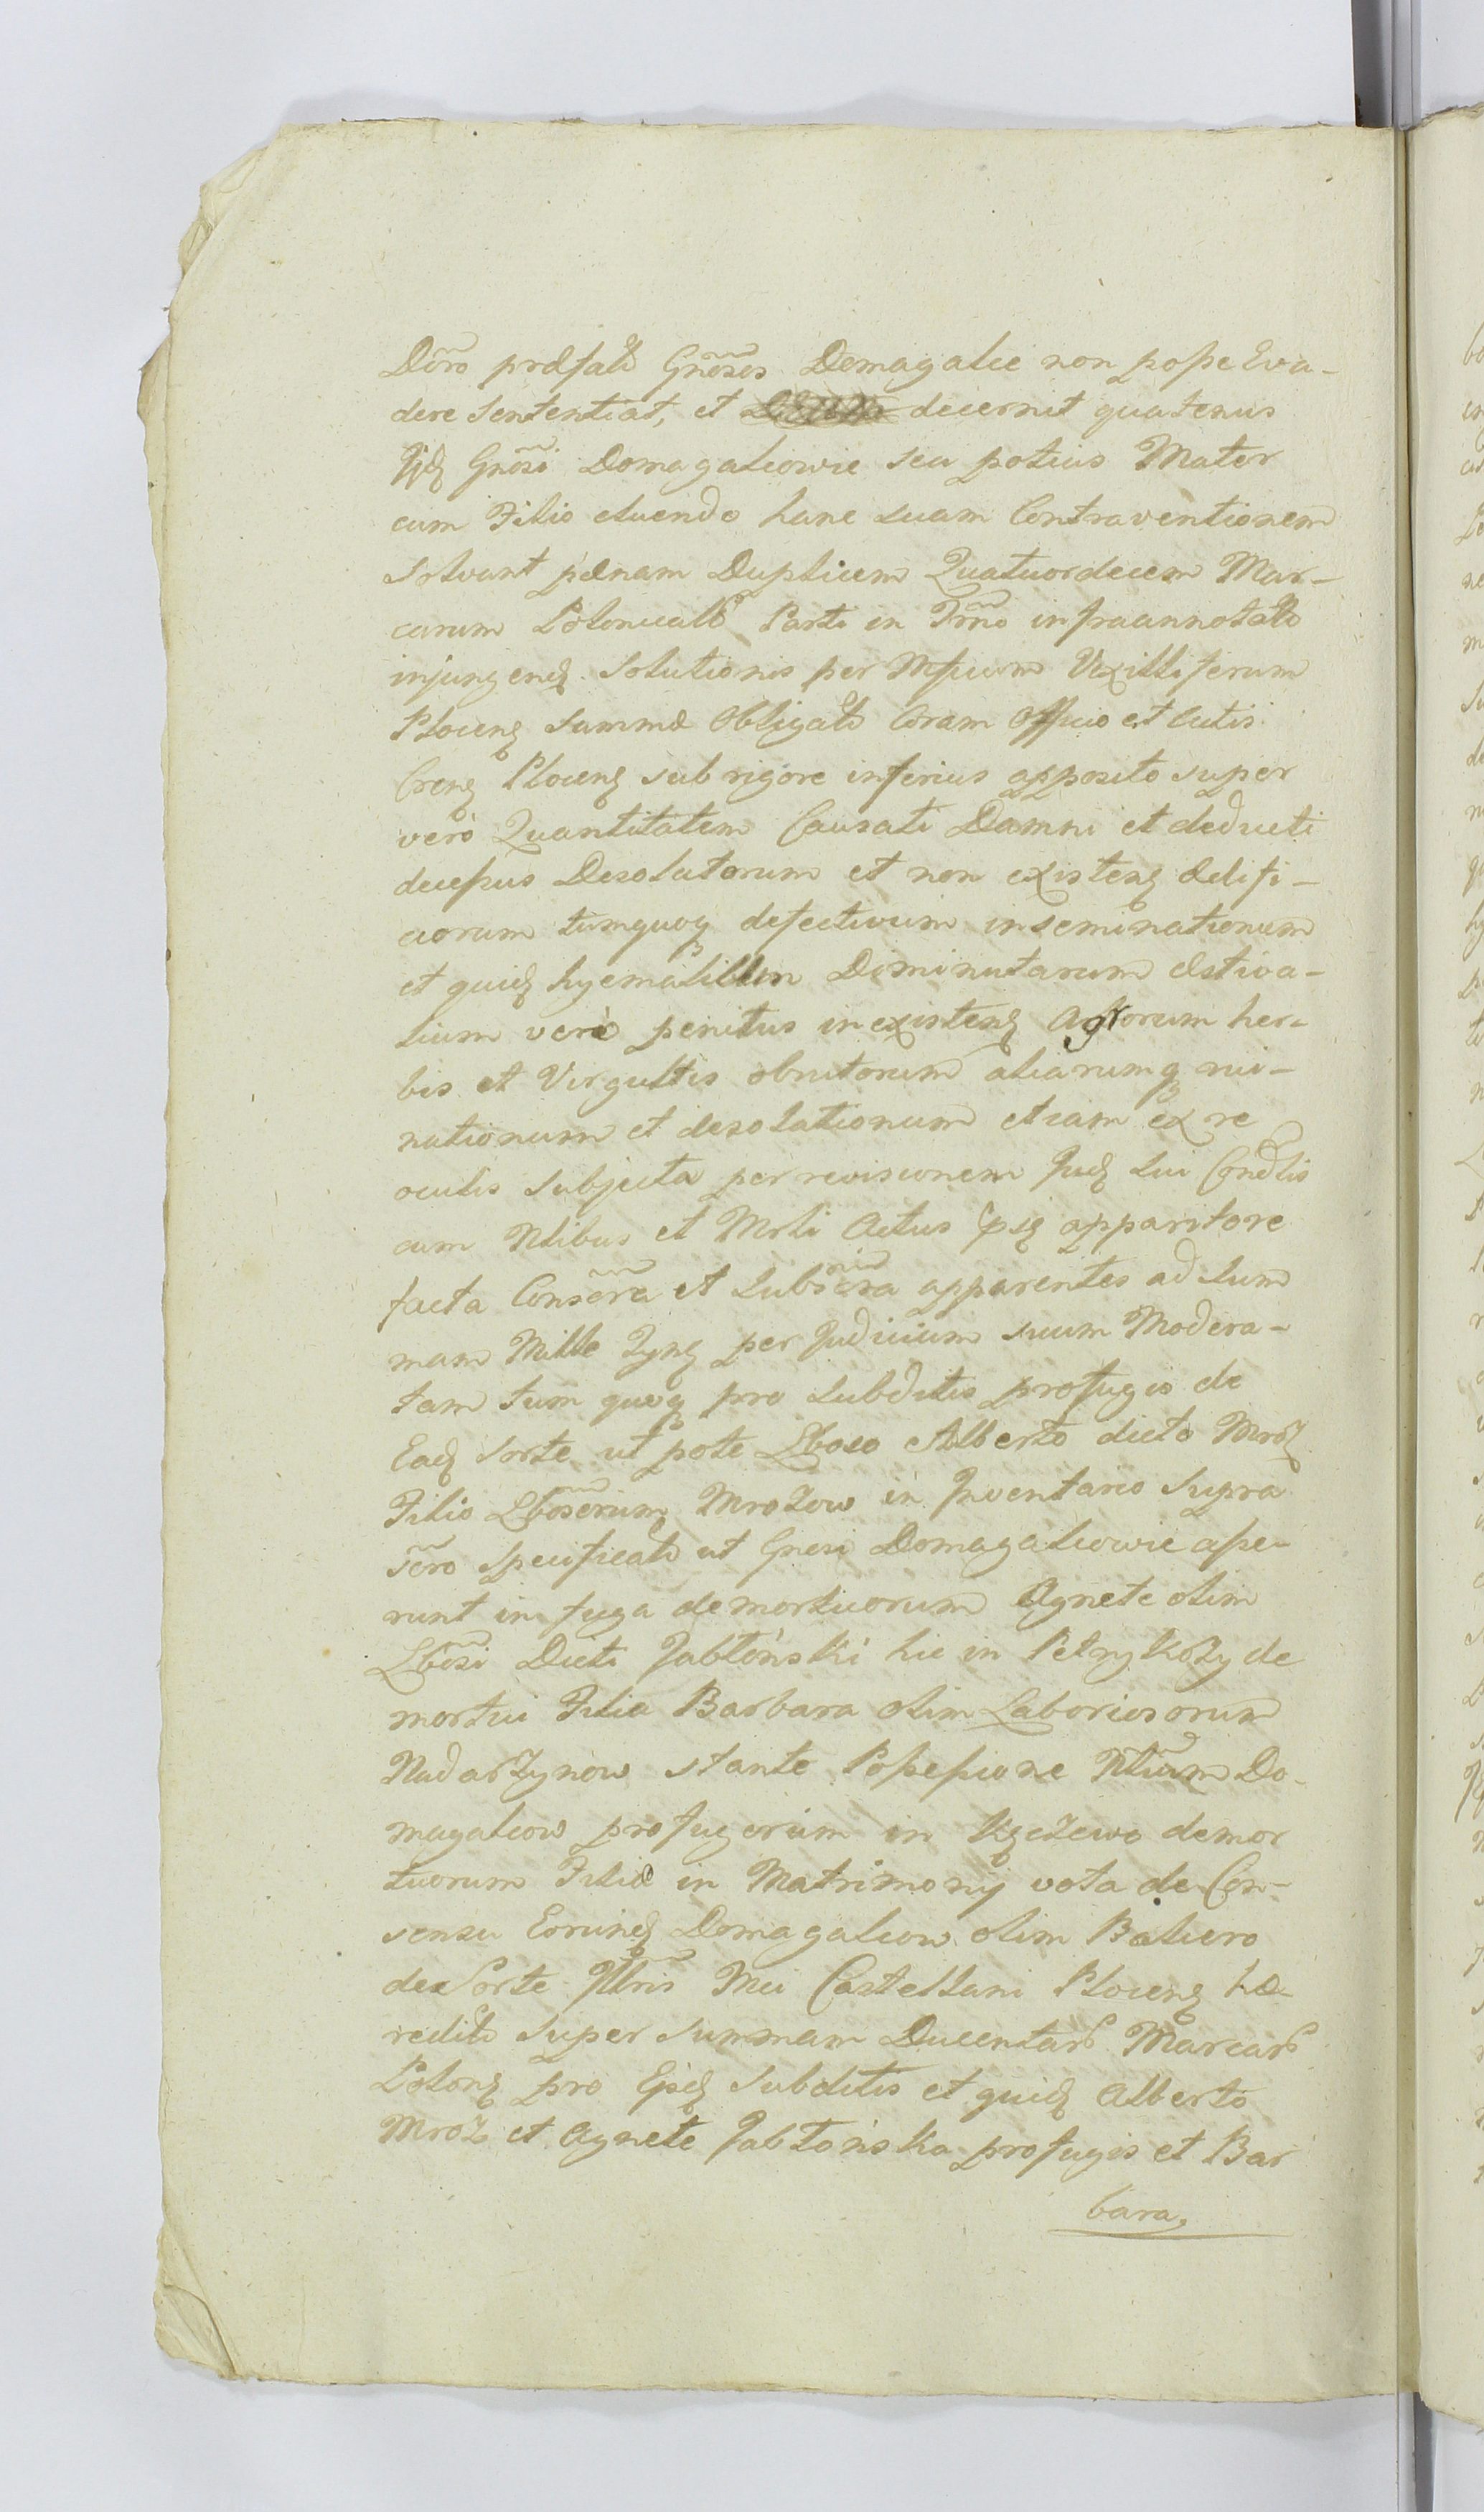 Dõro præfatt Gnõsos Domagalie non posse Eva-
dere Sententiat, et decernit quatenus
Iijdẽ Gnõsi Domagaliowie seu potius Mater
cum Filio eluendo hanc suam Contraventionem
Solvant pænam Duplicem Quatuordecem Mar-
carum Polonicalb Parti in Trño infraannotato
injungenẽ Solutionis per Mfficum Vexilliferum
Plocenẽ Summæ Obligatt Coram Officio et Actis
Crenẽ Plocenẽ sub rigore inferius apposito super
verò Quantitatem Causati Damni et deducti
decessus Desolatorum et non existenẽ Ædifi-
ciorum tumquoq defectivum inseminationum
et quidẽ hyemalium Diminutarum æstiva-
lium verò penitus inexistenẽ Agrorum her-
bis et Virgultis obrutorum aliarumq rui-
nationum et desolationum etiam ex re
oculis subjecta per revisionem Judẽ sui Condlis
cum Nlibus et Mrli Actus ipsẽ apparitore
facta Consẽra et Subsẽra apparentes ad Sum
mam Mille Tynẽ per Judicium suum Modera-
tam tum quoq pro Subditis profugis de
Eadẽ Sorte ut pote Lboso Alberto dicto Mroz
Filio Lbõsorum Mrozow in Inventario Supra
sẽro Specificatt ut Gnesi Domagaliowie asse-
runt in fuga demortuorum Agnete olim
Lbõsi Dicti Jabłoński hic in Petrykozy de
mortui Filia Barbara olim Laboriosorum
Nadarzynow stante Possessione Nlium Do-
magaliow profugorum in Kęczewo demor
tuorum Filiæ in Matrimonij vota de Con-
sensu Eorundẽ Domagaliow olim Baliero
de Sorte Illris Mci Castellani Plocenẽ hæ-
reditt super Summam Ducentarb Marcarb
Polonẽ pro Ejsdẽ Subditis et quidẽ Alberto
Mroz et Agnete Jabłońska profugis et Bar
bara,